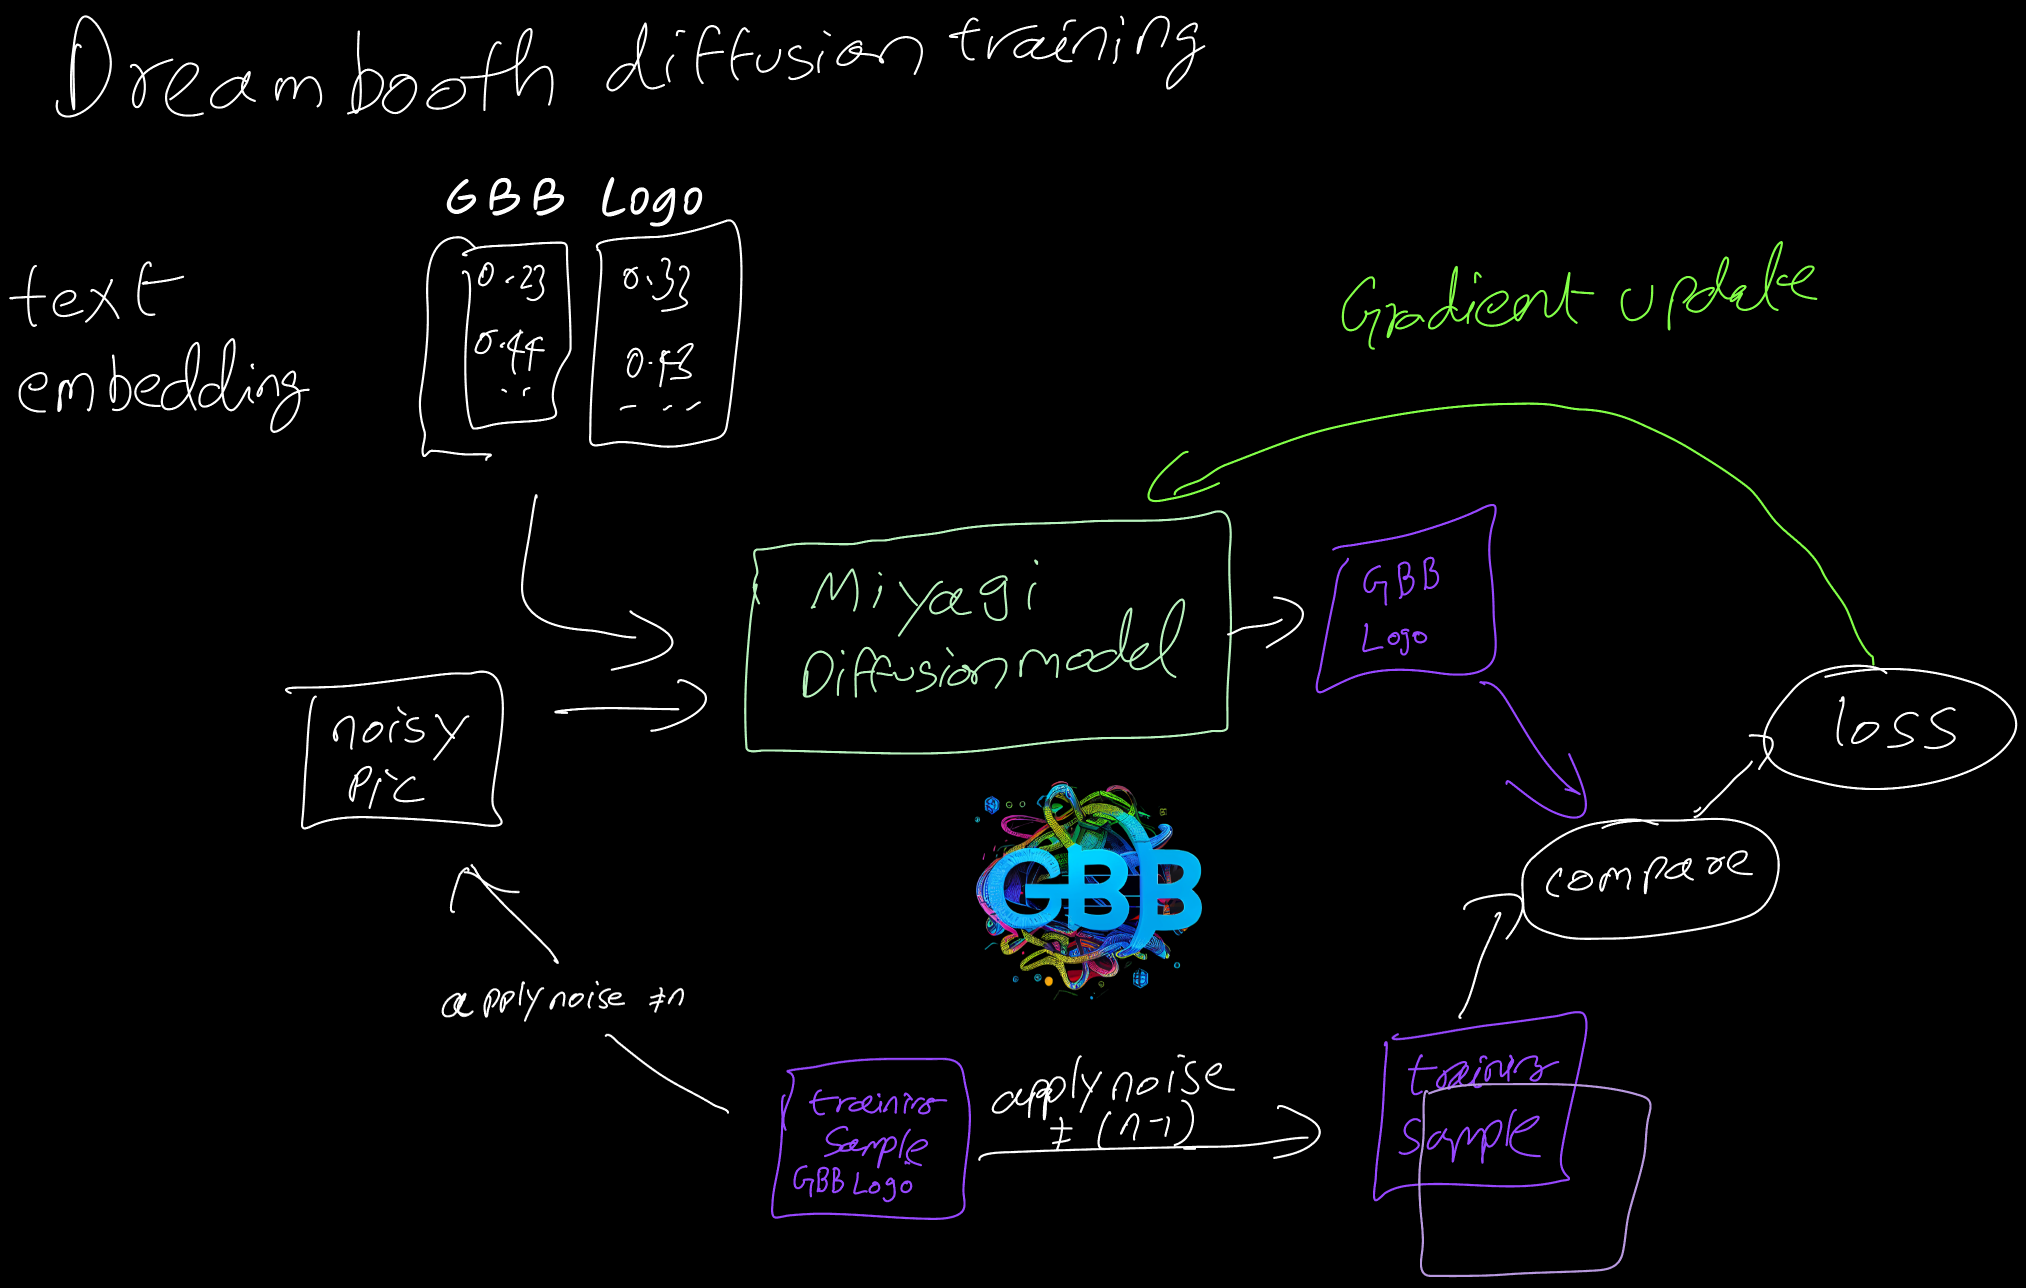 Dreambooth diffusion training
GBB Logo
text
embedding
0.23
0.44
..
0.33
0.43
- - -
Gradient update
Miyagi
Diffusion model
GBB
Logo
noisy
pic
loss
compare
GBB
apply noise ≠n
training
sample
GBB Logo
apply noise
≠ (n-1)
training
sample